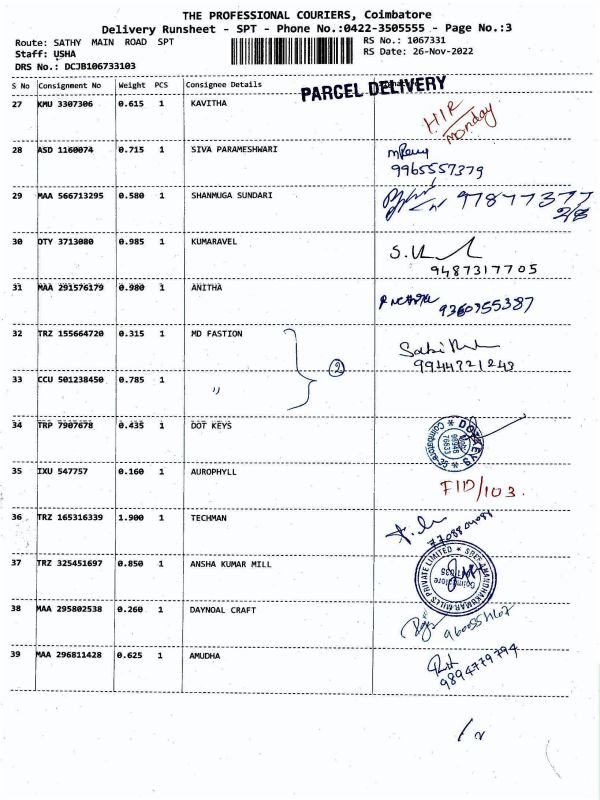 THE PROFESSIONAL COURIERS, Coimbatore
Delivery Runsheet - SPT - Phone No.:0422-3505555 - Page No.:3
Route: SATHY MAIN ROAD SPT
RS No.: 1067331
Staff: USHA
RS Date: 26-Nov-2022
DRS No.: DCJB106733103
S No Consignment No Weight PCS Consignee Details
PARCEL DELIVERY
27 KMU 3307306 0.615 1 KAVITHA
HIR
Monday
28 ASD 1160074 0.715 1 SIVA PARAMESHWARI
9965557379
29 MAA 566713295 0.580 1 SHANMUGA SUNDARI
97877377
30 OTY 3713080 0.985 1 KUMARAVEL
9487317705
31 MAA 291576179 0.980 1 ANITHA
9360755387
32 TRZ 155664720 0.315 1 MD FASTION
2
9944721243
33 CCU 501238450 0.785 1 "
34 TRP 7907678 0.435 1 DOT KEYS
35 IXU 547757 0.160 1 AUROPHYLL
FID/103.
36 TRZ 165316339 1.900 1 TECHMAN
37 TRZ 325451697 0.850 1 ANSHA KUMAR MILL
38 MAA 295802538 0.260 1 DAYNOAL CRAFT
39 MAA 296811428 0.625 1 AMUDHA
9894779794